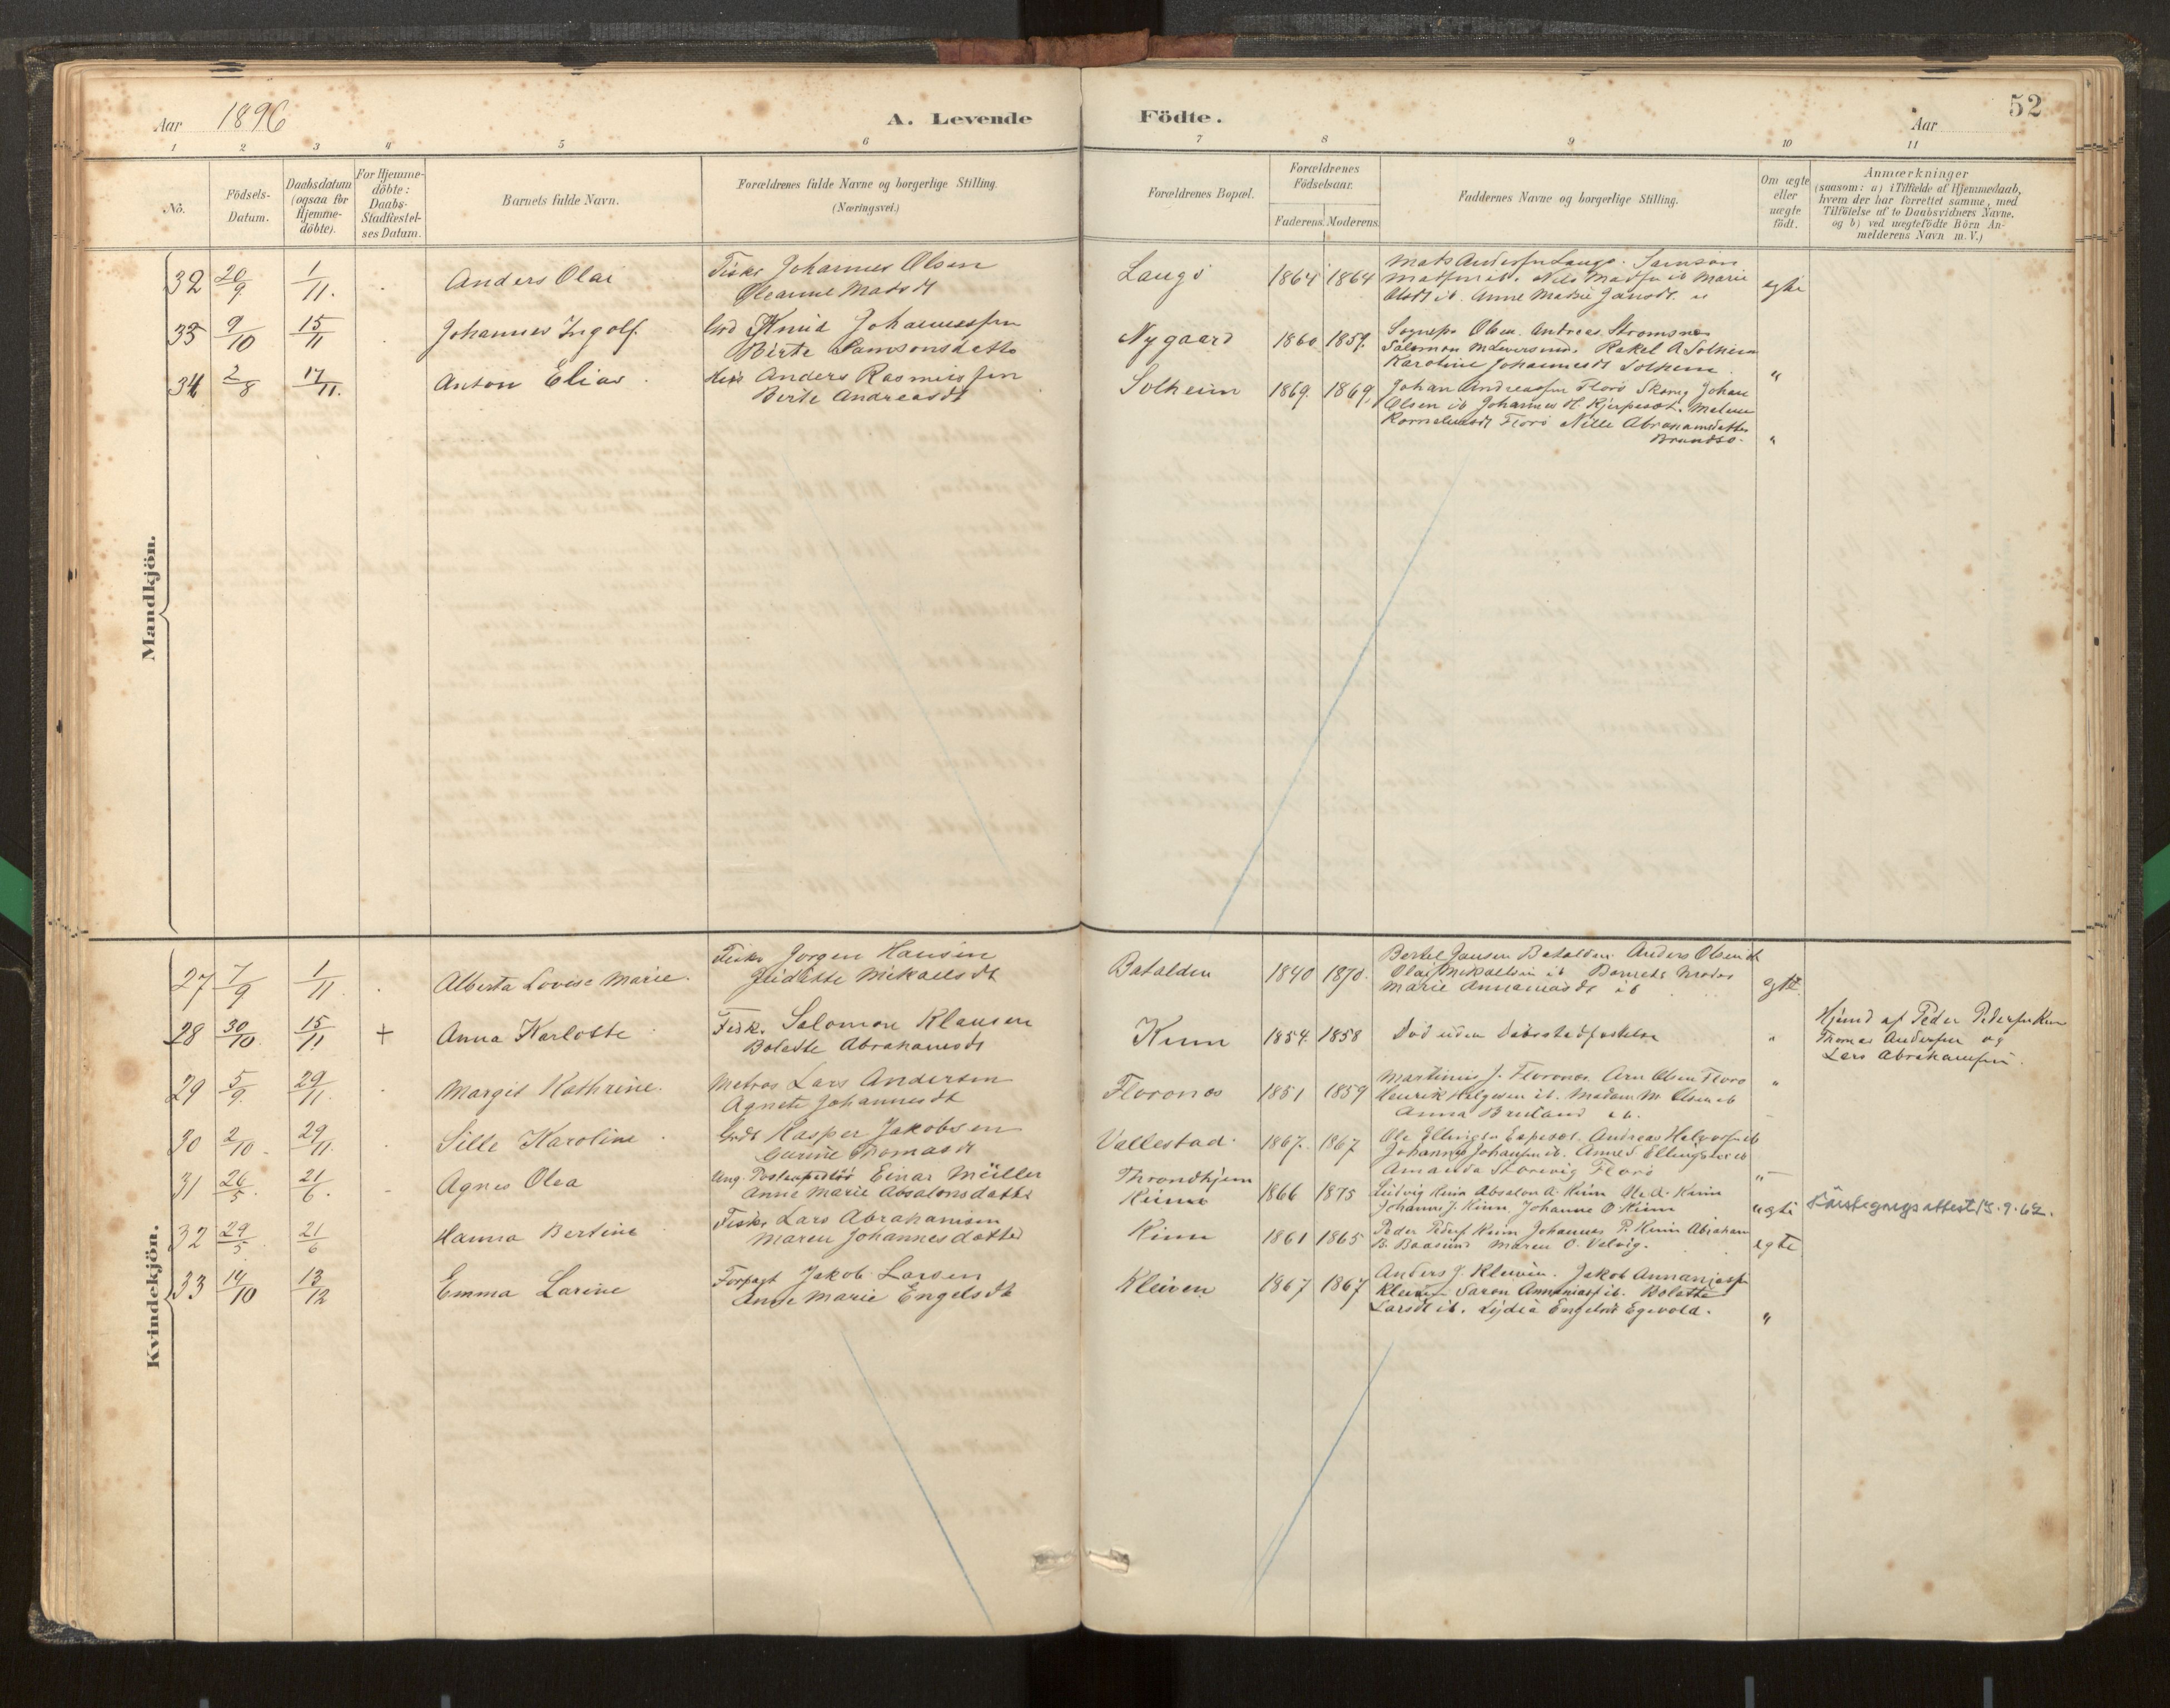 52
Aar 1896
A. Levende Födte.
Aar
1 2 3 4 5 6 7 8 9 10 11
No.
Födsels-
Datum.
Daabsdatum
(ogsaa for
Hjemme-
döbte).
For Hjemme-
döbte:
Daabs-
Stadfæstel-
ses Datum.
Barnets fulde Navn.
Forældrenes fulde Navne og borgerlige Stilling.
(Næringsvei.)
Forældrenes Bopæl.
Forældrenes
Födselsaar.
Faderens. Moderens.
Faddernes Navne og borgerlige Stilling.
Om ægte
eller
uægte
födt.
Anmærkninger
(saasom: a) i Tilfælde af Hjemmedaab,
hvem der har forrettet samme, med
Tilföielse af to Daabsvidners Navne,
og b) ved uægtefödte Börn An-
melderens Navn m. V.)
Mandkjön.
32 20/9 1/11. Anders Olai
Fisker Johannes Olsen
Oleanne Madsdt
Langö 1864 1864
Mats Andersen Langö. Samson
Madsen ib. Nils Madsen ib Marie
Olsdt ib. Anne Marie Jansdt "
egte
33 9/10 15/11 Johannes Ingolf.
Knud Johannessen
Berte Samsonsdatter
Nygaard 1860 1859.
Sognepr Olsen. Andreas Stromsnes
Salomon Rakel A Solheim
Karoline Johannesdt Solheim.
"
34 2/8 17/11. Anton Elias.
Anders Rasmussen
Berte Andreasdt
Solheim 1869. 1869.
Johan Andreassen Florö Johan
Olsen ib Johannes H.
Korneliusdt Florö Nille Abrahamsdatter
Brandsö.
"
Kvindekjön.
27 7/9 1/11. Alberta Lovise Marie.
Fisker Jorgen Hansen
Mikaelsdt
Batalden 1840 1870.
Bertel Jansen Batalden. Anders Olsen ib
Olai Mikaelsen ib Barnets Moder
Marie Annaniasdt ib
egte.
28 30/10. 15/11 + Anna Karlotte
Fisk. Salomon Klausen
Bolette Abrahamsdt
Kinn 1854. 1858
Död uden Daabsstadfestelse
"
Hjemd af Peder Pedersen Kinn
Thomas Andersen og
Lars Abrahamsen.
29 5/9. 29/11. Margit Kathrine.
Matros Lars Andersen
Agnete Johannesdt
Florones 1851 1859
Martinus J. Florones. Arn Olsen Florö
Henrik Helgesen ib. Madam M. Olsen ib
Anna Bruland ib.
"
30 2/10. 29/11. Sille Karoline.
Kasper Jakobsen
Gurine Thomasdt
Vallestad. 1867. 1867
Ole Ellingsen Espeset. Andreas
Johannes Johansen ib. Anne Ellingsdt ib
Amanda Storevig Florö
"
31 26/5. 21/6. Agnes Olea
Ung. Postexpeditör Einar Müller
Anne Marie Absalonsdatter
Throndhjem
Kinn
1866 1875
Ludvig Kinn Absalon A. Kinn Ole A. Kinn
Johanne J. Kinn, Johanne O. Kinn
uegte
15.9.62.
32 29/5 21/6 Hanna Bertine
Fisker Lars Abrahamsen
Maren Johannesdatter
Kinn 1861 1865
Peder Peders Kinn Johannes P. Kinn Abraham
B. Baasund Maren O. Velvig.
egte
33 14/10 13/12 Emma Larine
Forpagt Jakob Larsen
Anne Marie Engelsdt
Kleiven 1867 1867
Anders J. Kleiven. Jakob Annaniassen
Kleiven Søren Annaniass ib. Bolette
Larsdt ib. Lydia Engelsdt Egevold.
"